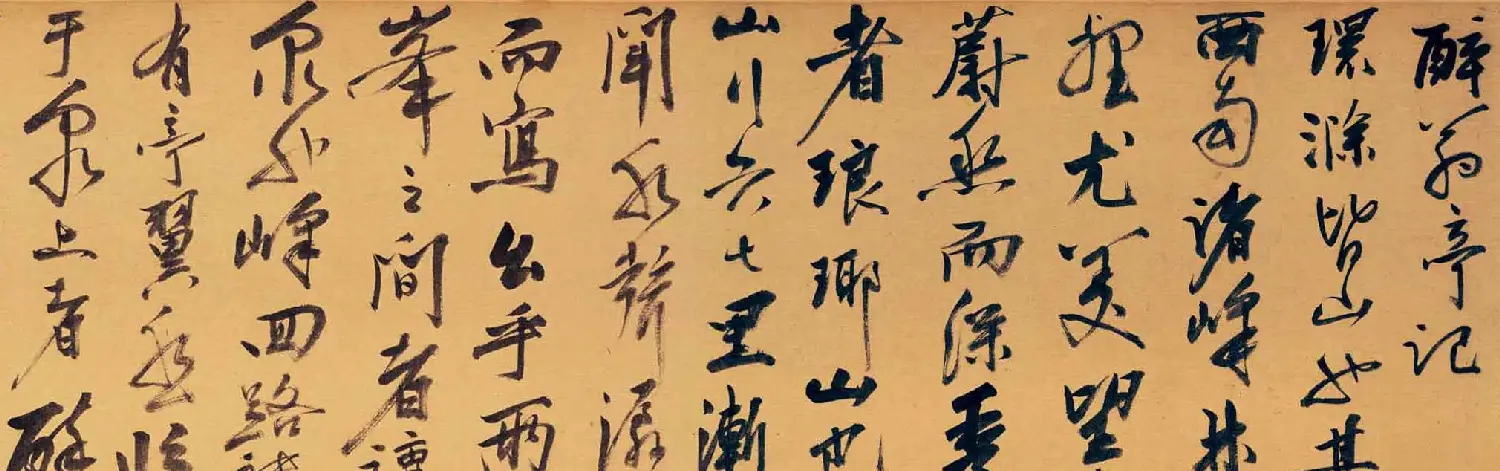 醉翁亭記
環滁皆山也其
西南諸峰林
壑尤美望
蔚然而深秀
者琅琊山也
山行六七里漸
聞水聲潺
而寫出乎兩
峯之間者
泉也峰回路
有亭翼然臨
于泉上者醉